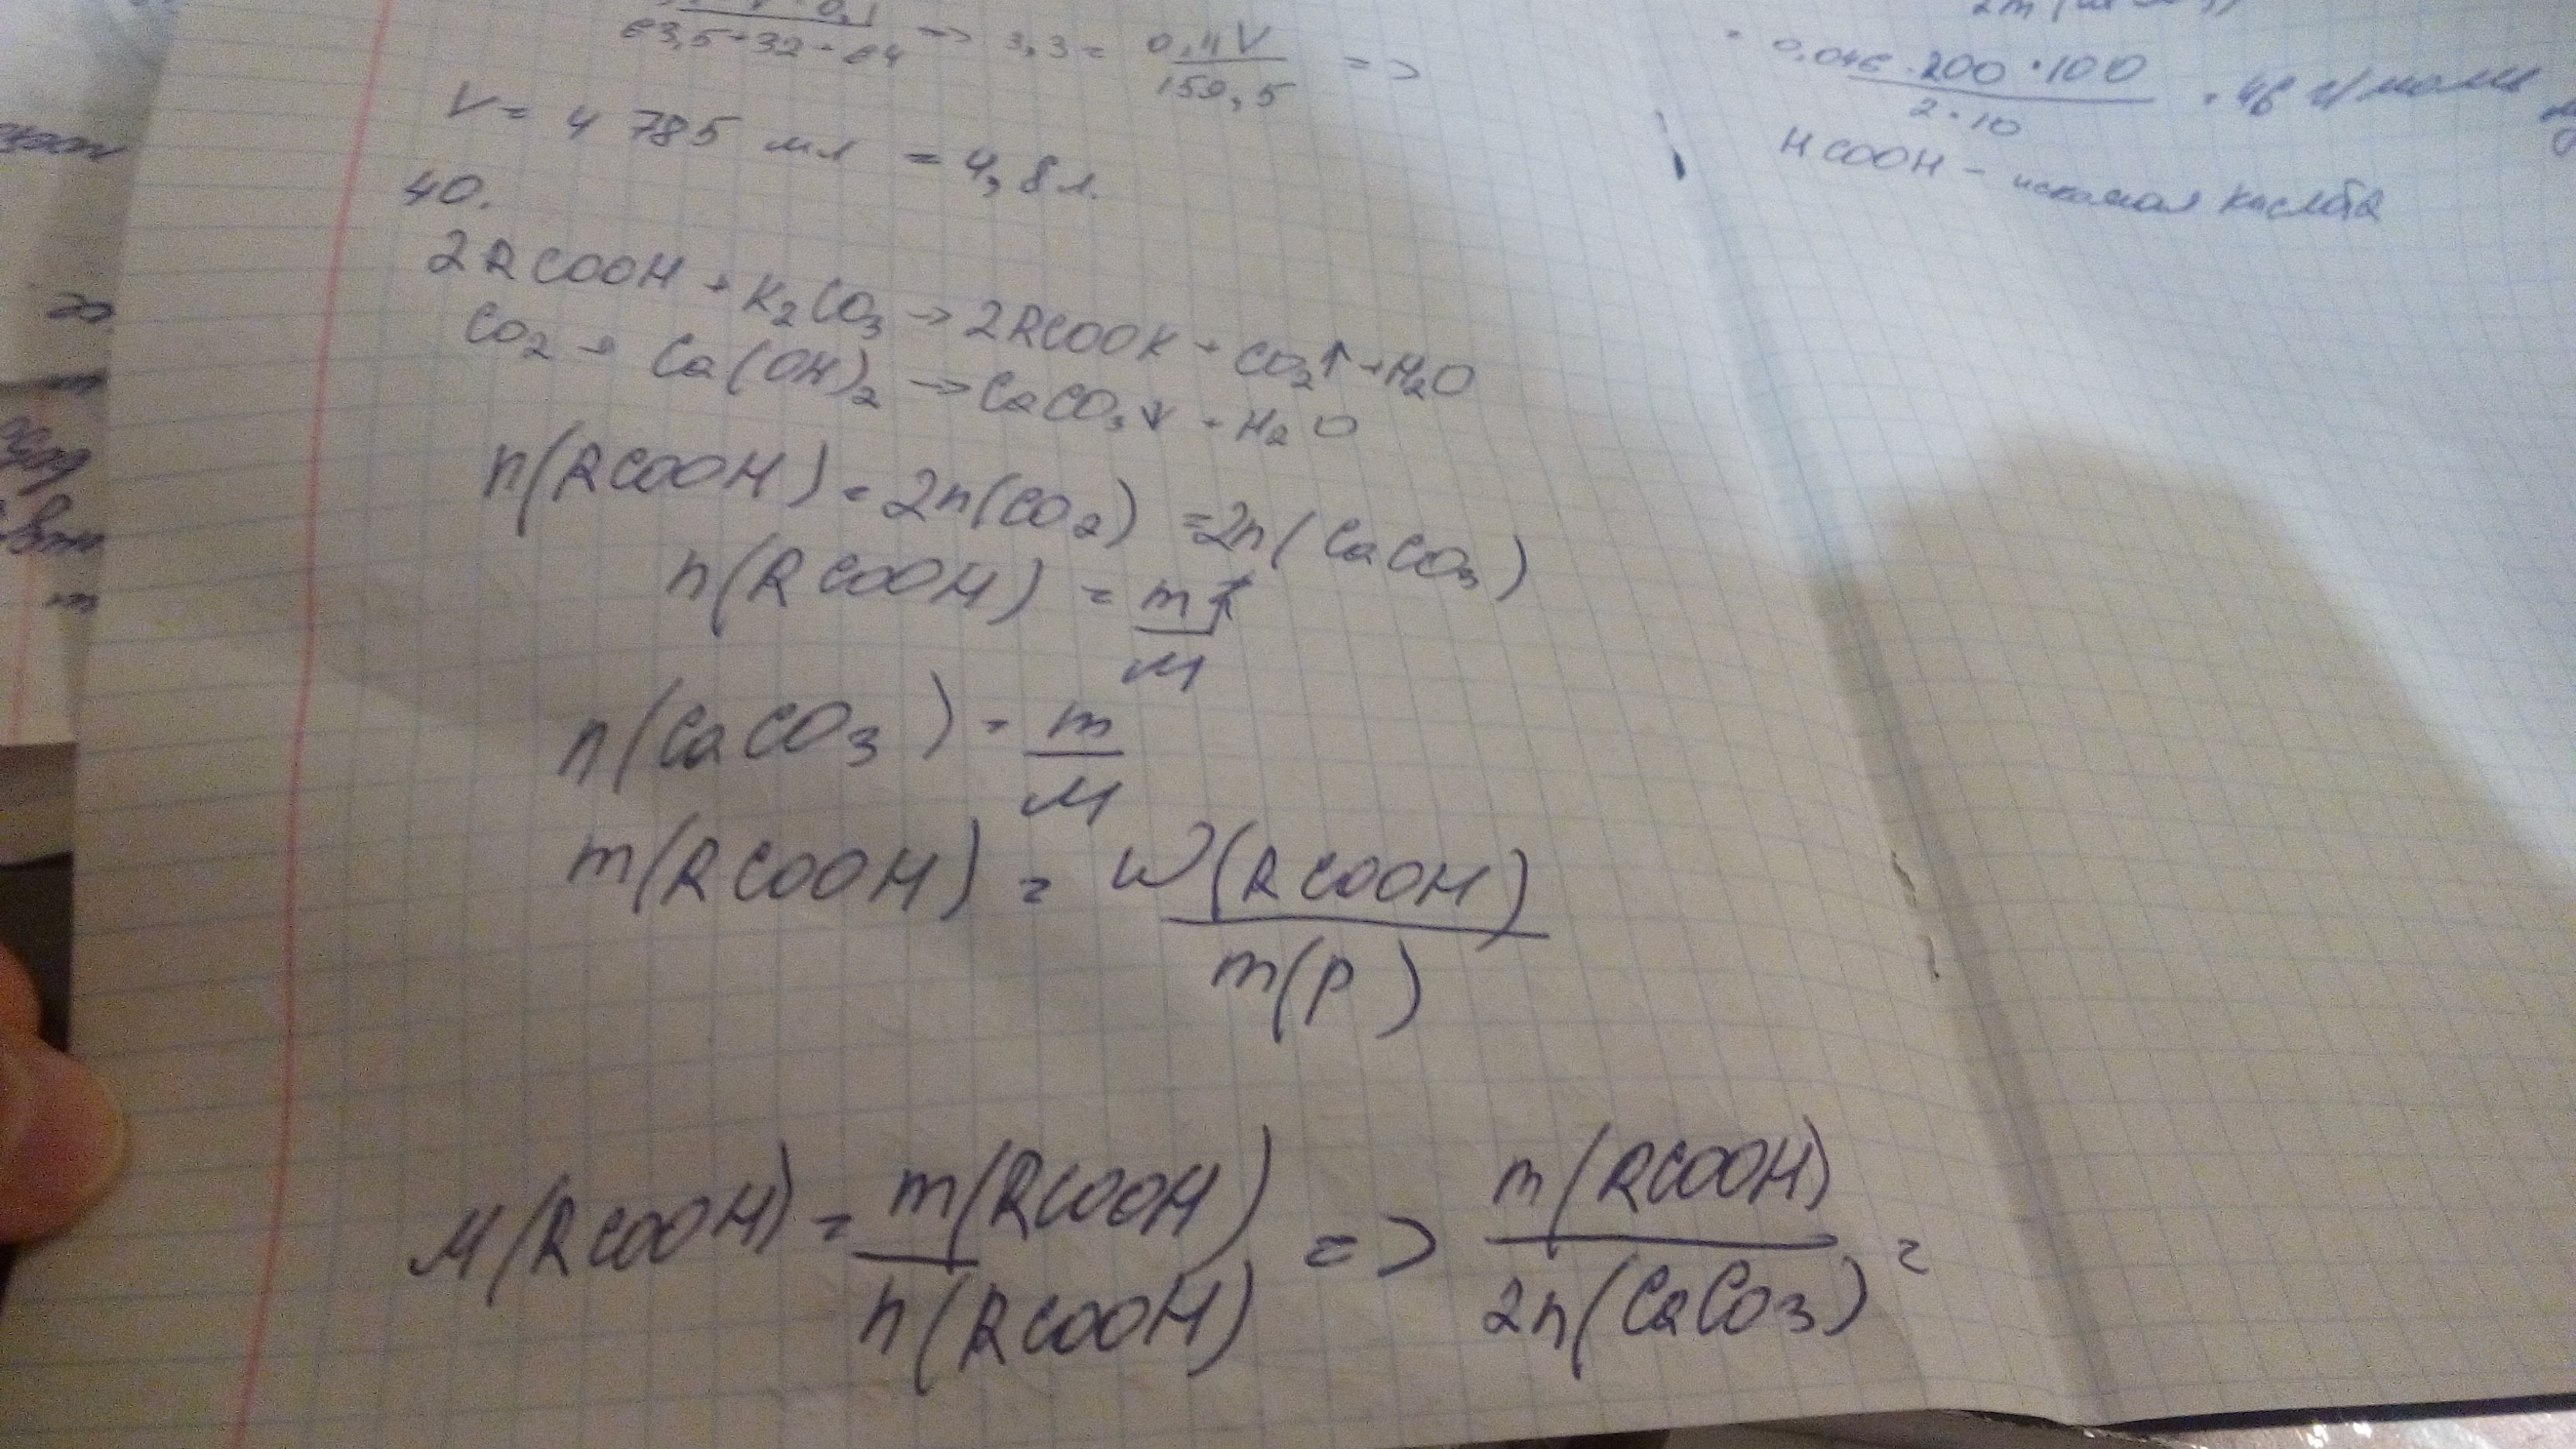 63,5+32+64 => 3,3 = 0,11V / 159,5 =>
V = 4 785 мл = 4,8 л.
40.
2RCOOH + K₂CO₃ → 2RCOOK + CO₂↑ + H₂O
CO₂ + Ca(OH)₂ → CaCO₃↓ + H₂O
n(RCOOH) = 2n(CO₂) = 2n(CaCO₃)
n(RCOOH) = m / M
n(CaCO₃) = m / M
m(RCOOH) = W(RCOOH) / m(p)
M(RCOOH) = m(RCOOH) / n(RCOOH) => m(RCOOH) / 2n(CaCO₃) =
= 0,046·200·100 / 2·10 = 46 г/моль
HCOOH – искомая кислота